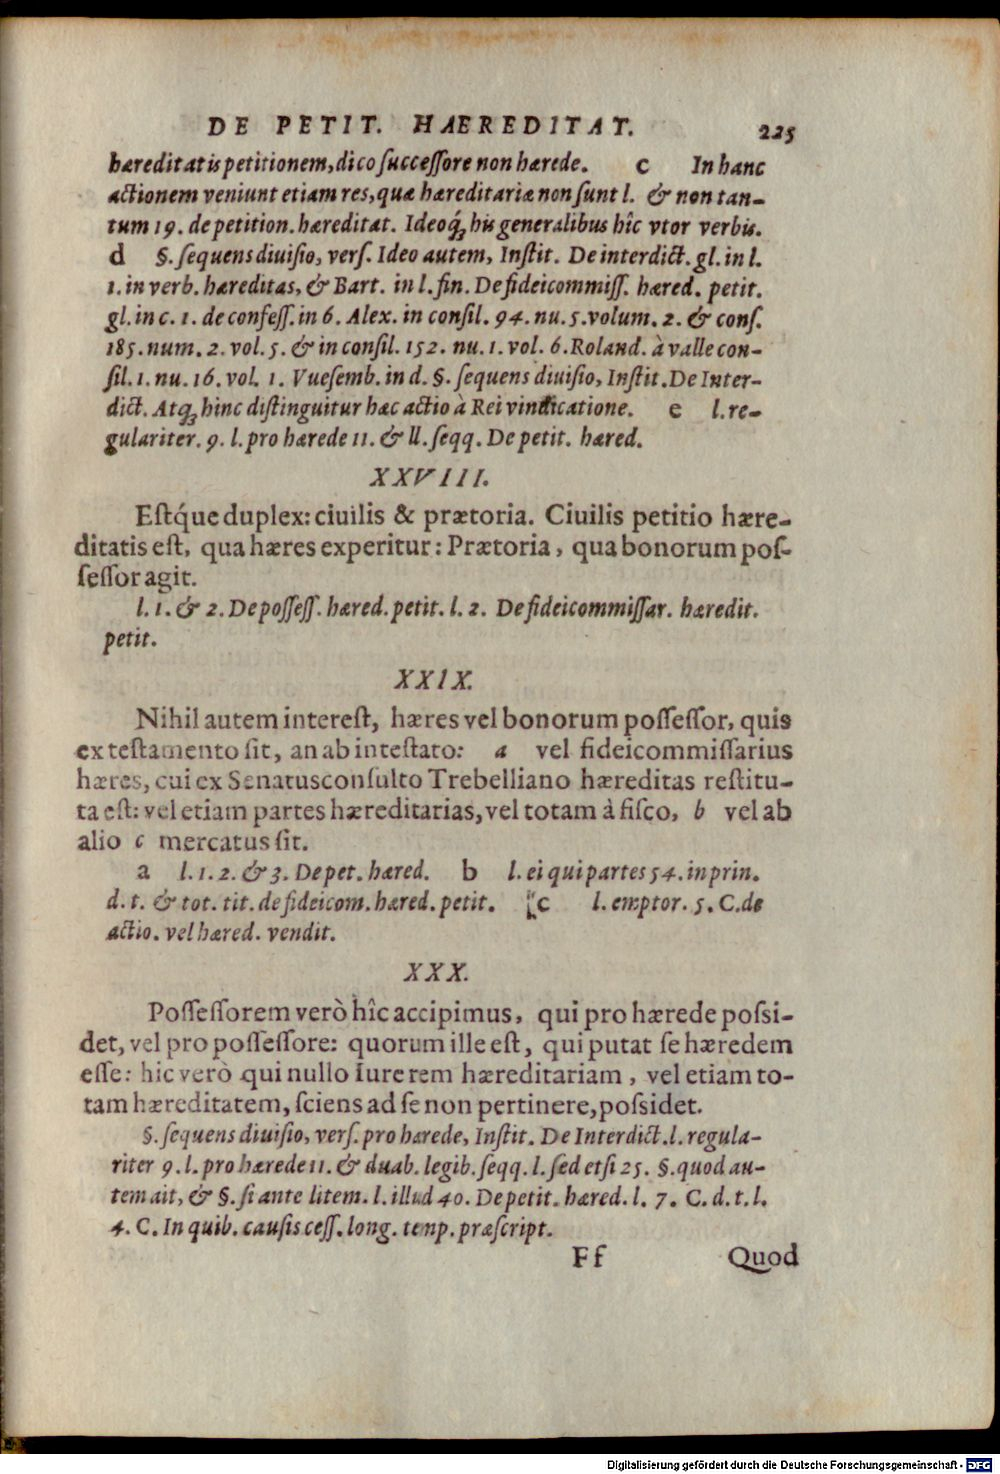 DE PETIT. HAEREDITAT. 225
hæreditatis petitionem, dico successore non hærede. c In hanc
actionem veniunt etiam res, quæ hæreditariæ non sunt l. & non tan-
tum 19. de petition. hæreditat. Ideoq́; his generalibus hîc vtor verbis.
d §. sequens diuisio, vers. Ideo autem, Instit. De interdict. gl. in l.
1. in verb. hæreditas, & Bart. in l. fin. De fideicommiss. hæred. petit.
gl. in c. 1. de confess. in 6. Alex. in consil. 94. nu. 5. volum. 2. & cons.
185. num. 2. vol. 5. & in consil. 152. nu. 1. vol. 6. Roland. à valle con-
sil. 1. nu. 16. vol. 1. Vuesemb. in d. §. sequens diuisio, Instit. De Inter-
dict. Atq́; hinc distinguitur hæc actio à Rei vindicatione. e l. re-
gulariter. 9. l. pro hærede 11. & ll. seqq. De petit. hæred.
XXVIII.
Estq́ue duplex: ciuilis & prætoria. Ciuilis petitio hære-
ditatis est, qua hæres experitur: Prætoria, qua bonorum pos-
sessor agit.
l. 1. & 2. De possess. hæred. petit. l. 2. De fideicommissar. hæredit.
petit.
XXIX.
Nihil autem interest, hæres vel bonorum possessor, quis
ex testamento sit, an ab intestato: a vel fideicommissarius
hæres, cui ex Senatusconsulto Trebelliano hæreditas restitu-
ta est: vel etiam partes hæreditarias, vel totam à fisco, b vel ab
alio c mercatus sit.
a l. 1. 2. & 3. De pet. hæred. b l. ei qui partes 54. in prin.
d. t. & tot. tit. de fideicom. hæred. petit. c l. emptor. 5. C. de
actio. vel hæred. vendit.
XXX.
Possessorem verò hîc accipimus, qui pro hærede possi-
det, vel pro possessore: quorum ille est, qui putat se hæredem
esse: hic verò qui nullo Iure rem hæreditariam, vel etiam to-
tam hæreditatem, sciens ad se non pertinere, possidet.
§. sequens diuisio, vers. pro hærede, Instit. De Interdict. l. regula-
riter 9. l. pro hærede 11. & duab. legib. seqq. l. sed etsi 25. §. quod au-
tem ait, & §. si ante litem. l. illud 40. De petit. hæred. l. 7. C. d. t. l.
4. C. In quib. causis cess. long. temp. præscript.
Ff Quod
Digitalisierung gefördert durch die Deutsche Forschungsgemeinschaft - DFG